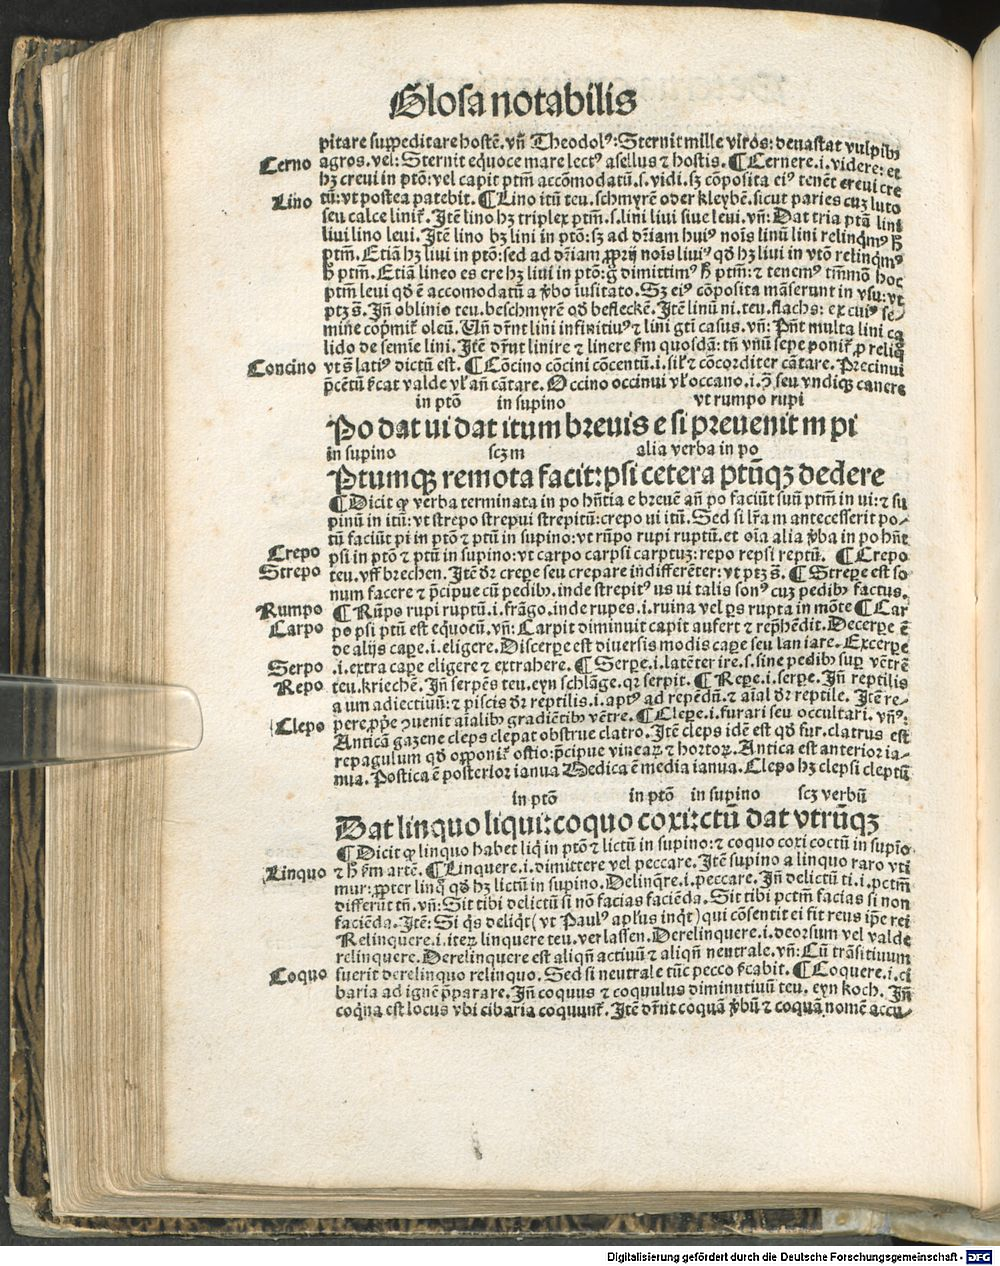 Glosa notabilis
pitare suppeditare hostē. vñ Theodolꝰ: Sternit mille viros: deuastat vulpibꝫ
Cerno agros. vel: Sternit equoce mare lectꝰ asellus ⁊ hostis. ¶ Cernere .i. videre: et
hꝫ creui in ptō: vel capit ptm̄ accōmodatū .s. vidi. sꝫ cōposita eiꝰ tenēt creui cre
Lino tū: vt postea patebit. ¶ Lino itū teu. schmyrē oder kleybē. sicut paries cuꝫ luto
seu calce linit̄. Itē lino hꝫ triplex ptm̄ .s. lini liui siue leui. vñ: Dat tria ptā lini
liui lino leui. Itē lino hꝫ lini in ptō: sꝫ ad dr̄iam huiꝰ nois linū lini relinqm̄ꝰ ꝧ
ptm̄. Etiā hꝫ liui in ptō: sed ad dr̄iam ꝓprij nois liuiꝰ qđ hꝫ liui in vtō relinqm̄ꝰ
ꝧ ptm̄. Etiā lineo es ere hꝫ liui in ptō: g̊ dimittimꝰ ꝧ ptm̄: ⁊ tenemꝰ tm̄mō hoc
ptm̄ leui qđ ē accomodatū a v̄bo iusitato. Sꝫ eiꝰ cōposita māserunt in vsu: vt
ptꝫ s̄. Jñ oblinio teu. beschmyrē qđ befleckē. Itē linū ni. teu. flachs: ex cuiꝰ se⸗
mine copmit̄ oleū. Vñ dr̄nt lini infinitiuꝰ ⁊ lini gt̄i casus. vñ: Pn̄t multa lini ca
lido de semie lini. Itē dr̄nt linire ⁊ linere ẜm quosdā: tn̄ vnū sepe ponit̄ ꝓ reliq̊
Concino vt s̄ latiꝰ dictū est. ¶ Cōcino cōcini cōcentū .i. silr̄ ⁊ cōcorditer cātare. Precinui
p̄cētū ẜcat valde vl̓ añ cātare. Occino occinui vl̓ occano .i. ꝯ̄ seu vndiqꝫ canere
in ptō in supino vt rumpo rupi
Po dat ui dat itum breuis e si preuenit m pi
in supino scꝫ m alia verba in po
Ptumqꝫ remota facit: psi cetera ptūqꝫ dedere
¶ Dicit ꝙ verba terminata in po hn̄tia e breuē añ po faciūt suū ptm̄ in ui: ⁊ su
pinū in itū: vt strepo strepui strepitū: crepo ui itū. Sed si lr̄a m antecesserit po⸗
tū faciūt pi in ptō ⁊ ptū in supino: vt rūpo rupi ruptū. et oīa alia v̄ba in po hn̄t
Crepo psi in ptō ⁊ ptū in supino: vt carpo carpsi carptuꝫ: repo repsi reptū. ¶ Crepo
Strepo teu. vff brechen. Itē dr̄ crepe seu crepare indifferēter: vt ptꝫ s̄. ¶ Strepe est so
num facere ⁊ p̄cipue cū pedibꝫ. inde strepitꝰ us ui talis sonꝰ cuꝫ pedibꝫ factus.
Rumpo ¶ Rūpo rupi ruptū .i. frāgo. inde rupes .i. ruina vel ꝑs rupta in mōte ¶ Car
Carpo po psi ptū est equocū. vñ: Carpit diminuit capit aufert ⁊ rephēdit. Decerpe ē
de alijs capere .i. eligere. Discerpe est diuersis modis cape seu laniare. Excerpe
Serpo .i. extra cape eligere ⁊ extrahere. ¶ Serpe .i. latēter ire .s. sine pedibꝫ sup vētrē
Repo teu. kriechē. Jñ serpēs teu. eyn schlāge. qꝛ serpit. ¶ Repe .i. serpe. Jñ reptilis
a um adiectiuū: ⁊ piscis dr̄ reptilis .i. aptꝰ ad repēdū. ⁊ aīal dr̄ reptile. Itē re⸗
Clepo pere ꝓpe ꝯuenit aīalibꝫ gradiētibꝫ vētre. ¶ Clepe .i. furari seu occultari. vñꝰ.
Anticā gazene cleps clepat obstrue clatro. Itē cleps idē est qđ fur. clatrus est
repagulum qđ opponit̄ ostio: p̄cipue vinearꝫ ⁊ hortorꝫ. Antica est anterior ia⸗
nua. Postica ē posterior ianua Medica ē media ianua. Clepo hꝫ clepsi cleptū
in ptō in ptō in supino scꝫ verbū
Dat linquo liqui: coquo coxi: ctū dat vtrūqꝫ
¶ Dicit ꝙ linquo habet liqi in ptō ⁊ lictū in supino: ⁊ coquo coxi coctū in supīo
Linquo ⁊ ꝧ ẜm artē. ¶ Linquere .i. dimittere vel peccare. Itē supino a linquo raro vti
mur: ꝓpter linqi qđ hꝫ lictū in supino. Delinqre .i. peccare. Jñ delictū ti .i. pctm̄
differūt tñ. vñ: Sit tibi delictū si nō facias faciēda. Sit tibi pctm̄ facias si non
faciēda. Itē: Si q̄s deliqt (vt Paulꝰ apl̓us inqt) qui cōsentit ei fit reus ip̄e rei
Relinquere .i. iterꝫ linquere teu. verlassen. Derelinquere .i. deorsum vel valde
relinquere. Derelinquere est aliqn̄ actiuū ⁊ aliqn̄ neutrale. vñ: Cū trāsitiuum
Coquo fuerit derelinquo relinquo. Sed si neutrale tūc pecco ẜcabit. ¶ Coquere .i. ci
baria ad ignē p̄parare. Jñ coquus ⁊ coquulus diminutiuū teu. eyn koch. Jñ
coqna est locus vbi cibaria coquunt̄. Itē dr̄nt coquā v̄bū ⁊ coquā nomē accu⸗
Digitalisierung gefördert durch die Deutsche Forschungsgemeinschaft - DFG